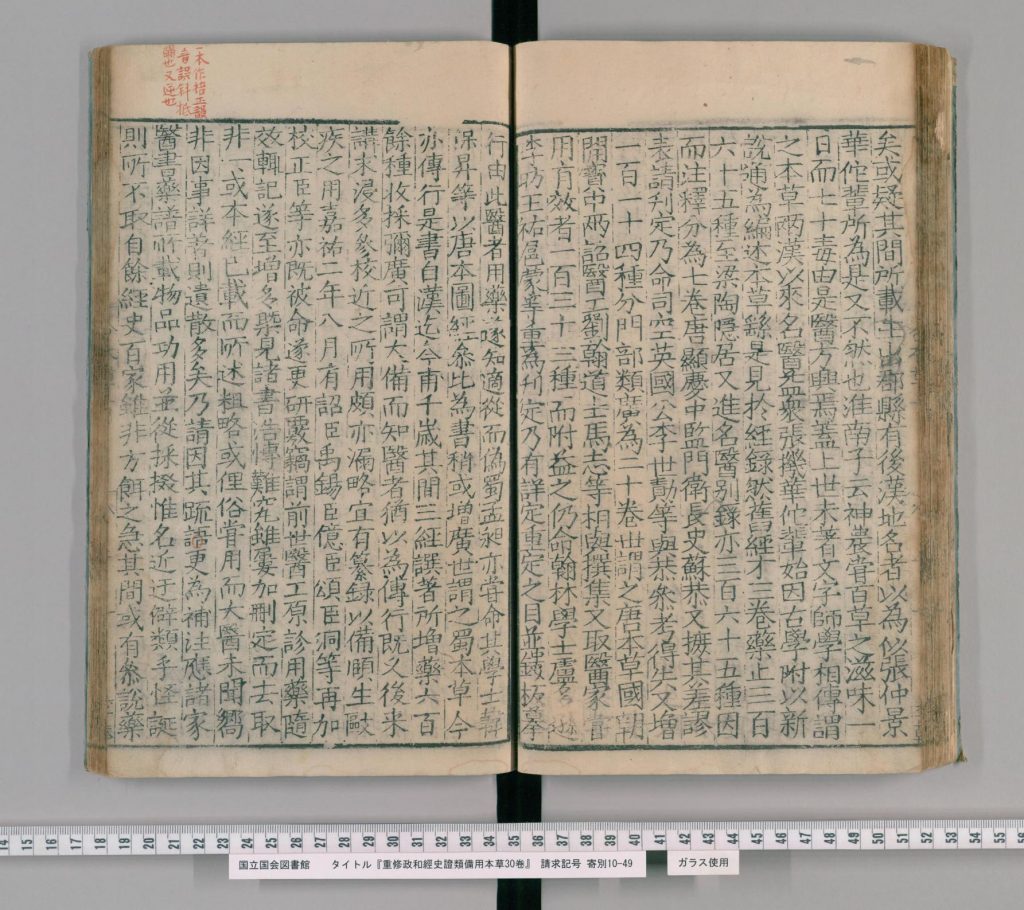 矣或疑其間所載生出郡縣有後漢地名者以為似張仲景
華佗輩所為是又不然也淮南子云神農嘗百草之滋味一
日而七十毒由是醫方興焉蓋上世未著文字師學相傳謂
之本草兩漢以來名醫益衆張機華佗輩始因古學附以新
說通為編述本草繇是見於經錄然舊經才三卷藥止三百
六十五種至梁陶隱居又進名醫別錄亦三百六十五種因
而注釋分為七卷唐顯慶中監門衛長史蘇恭又摭其差謬
表請刊定乃命司空英國公李世勣等與恭參考得失又增
一百一十四種分門部類廣為二十卷世謂之唐本草國朝
開寶中兩詔醫工劉翰道士馬志等相與撰集又取醫家嘗
用有效者一百三十三種而附益之仍命翰林學士盧多遜
李昉王祐扈蒙等重為刊定乃有詳定重定之目並鏤板摹
行由此醫者用藥遂知適從而偽蜀孟昶亦嘗命其學士韓
保昇等以唐本圖經參比為書稍或增廣世謂之蜀本草今
亦傳行是書自漢迄今甫千歲其間三經譔著所增藥六百
餘種收採彌廣可謂大備而知醫者猶以為傳行既久後來
講求浸多參校近之所用頗亦漏略宜有纂錄以備頤生敺
疾之用嘉祐二年八月有詔臣禹錫臣億臣頌臣洞等再加
校正臣等亦既被命遂更研覈竊謂前世醫工原診用藥隨
效輒記遂至增多槩見諸書浩博難究雖屢加刪定而去取
非一或本經已載而所述粗略或俚俗嘗用而大醫未聞嚮
非因事詳著則遺散多矣乃請因其疏語更為補注應諸家
醫書藥譜所載物品功用並從採掇惟名近迂僻類乎怪誕
則所不取自餘經史百家雖非方餌之急其間或有參說藥
一本作梧玉韻
音誤斜抵
也又逆也
国立国会図書館 タイトル『重修政和經史證類備用本草30巻』 請求記号 寄別10-49
ガラス使用
14 15 16 17 18 19 20 21 22 23 24 25 26 27 28 29 30 31 32 33 34 35 36 37 38 39 40 41 42 43 44 45 46 47 48 49 50 51 52 53 54 55 56